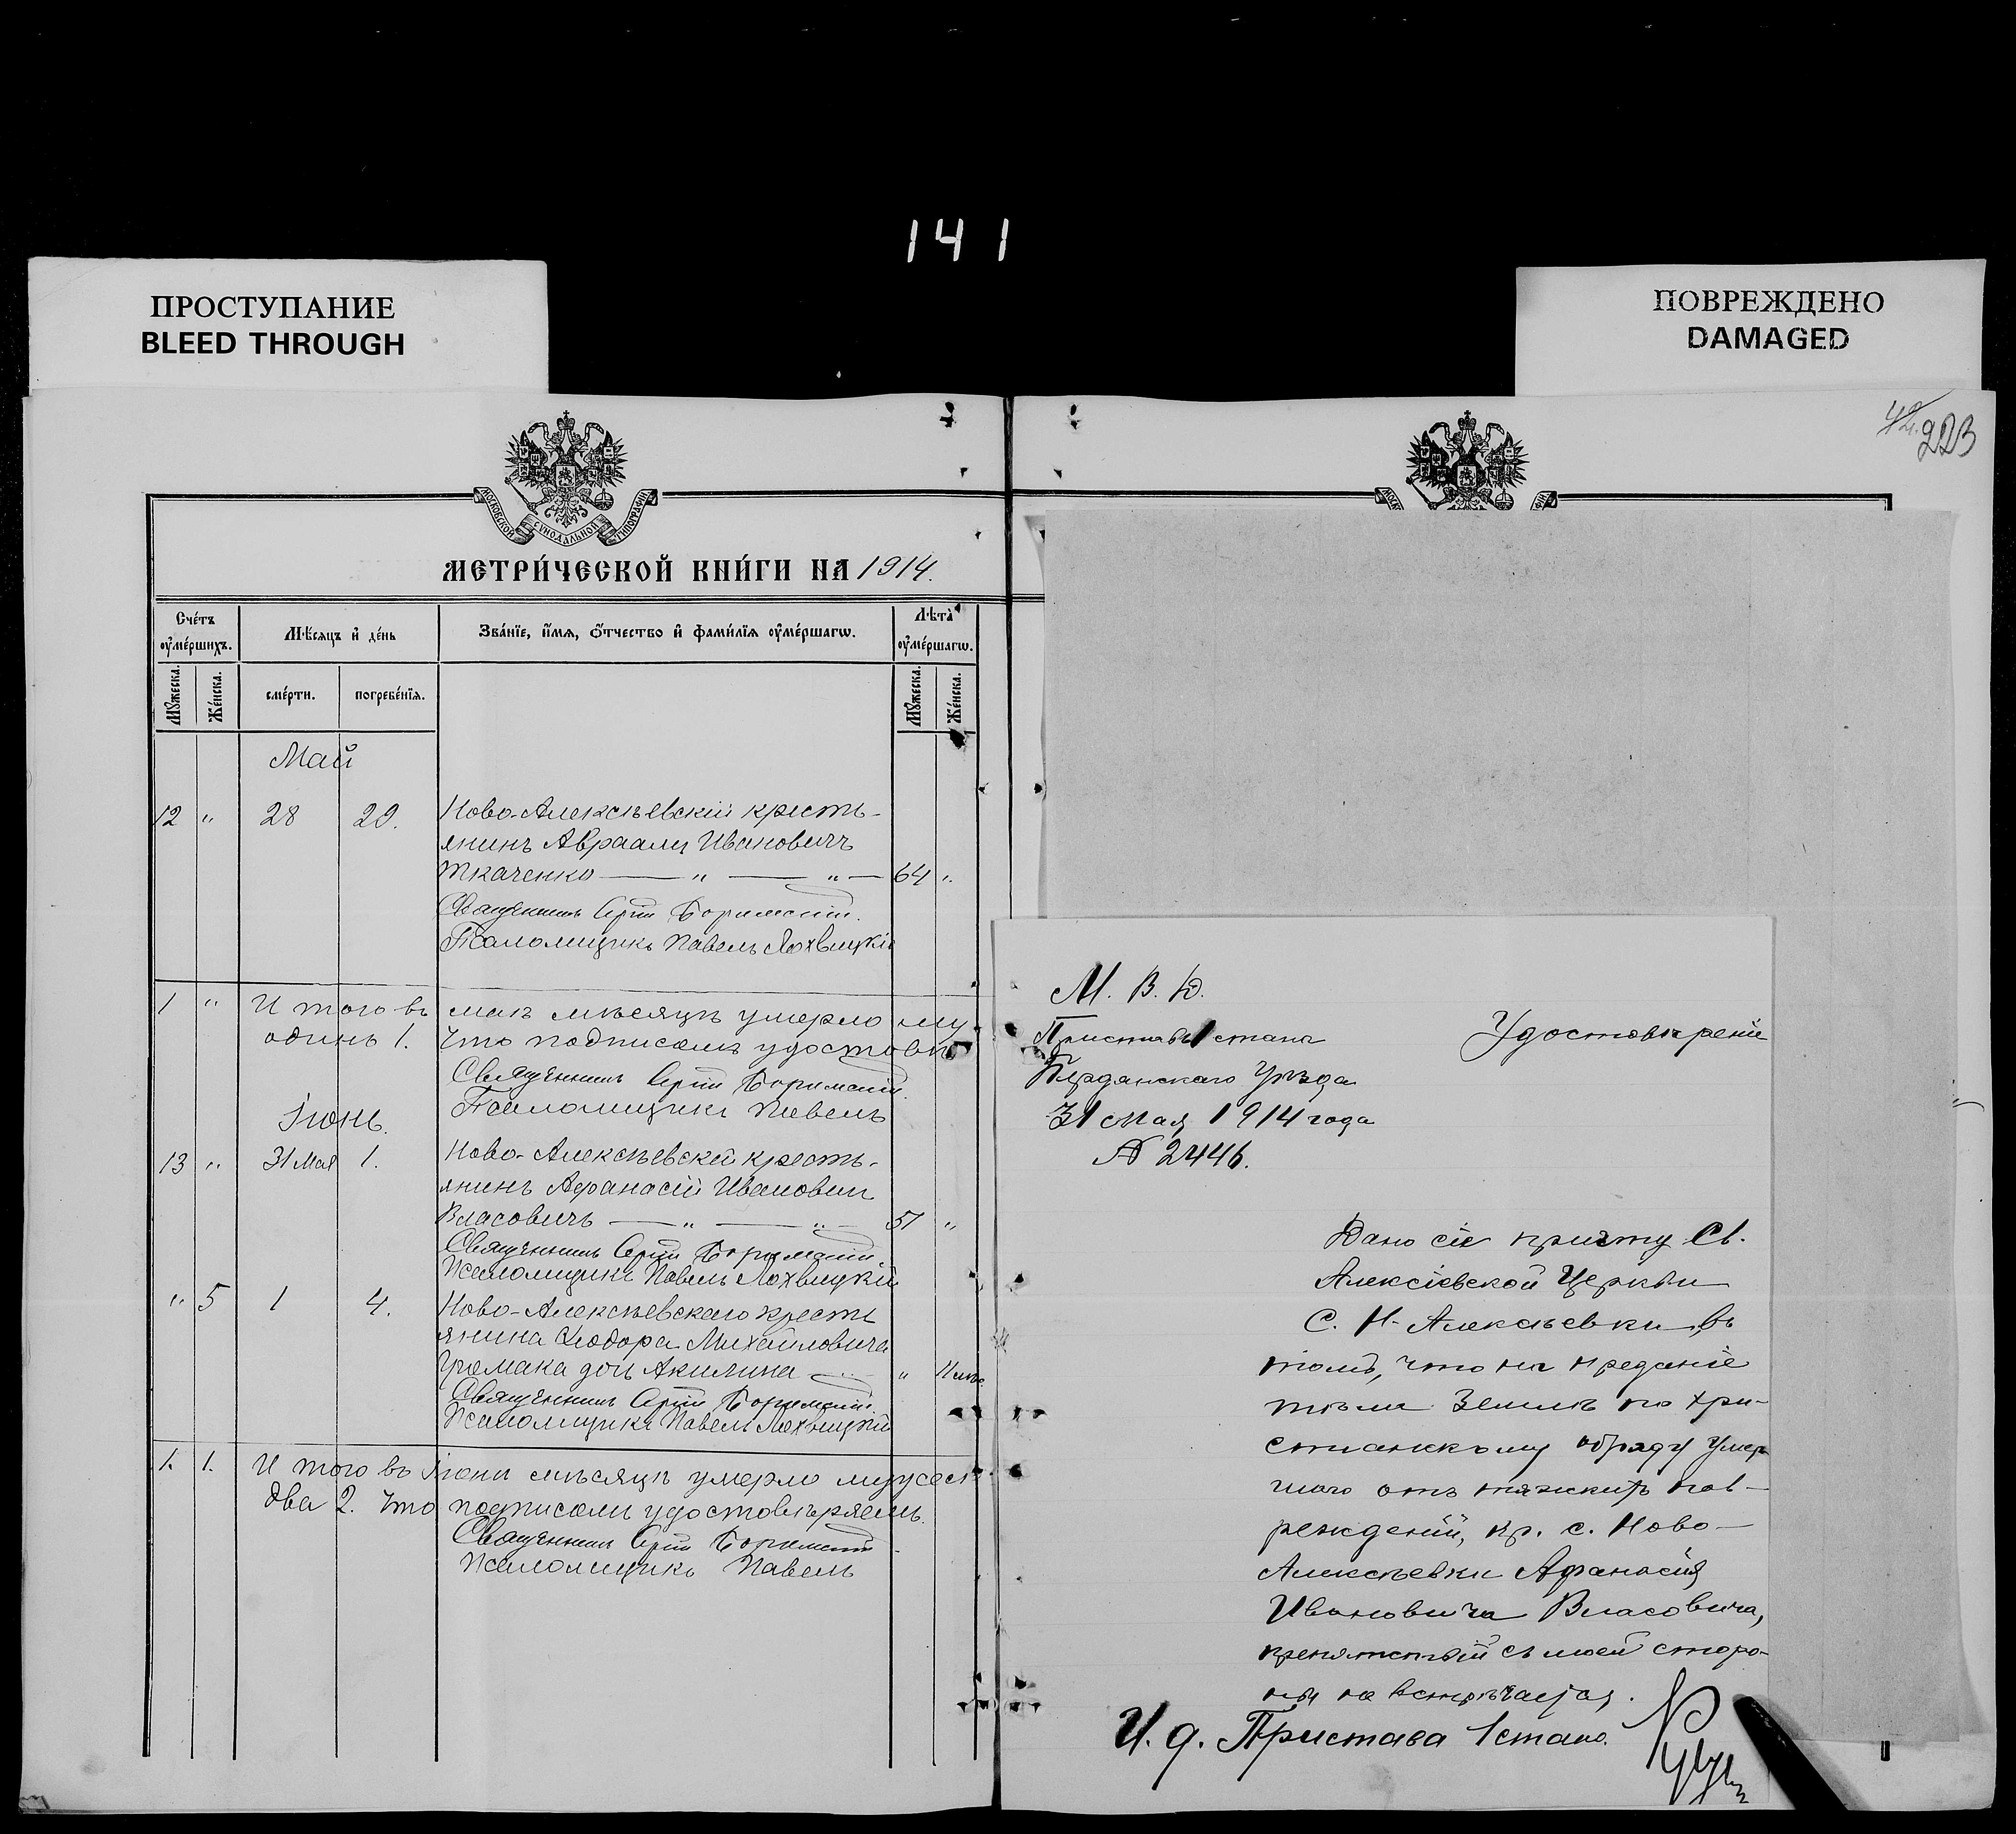 141
ПРОСТУПАНИЕ
BLEED THROUGH
ПОВРЕЖДЕНО
DAMAGED
223
МОСКОВСКОЙ СѴНОДАЛЬНОЙ ТИПОГРАФІИ
МЕТРИ́ЧЕСКОЙ КНИ́ГИ НА 1914.
Сче́тъ ᲂу҆ме́ршихъ.
Мѣ́сяцъ и҆ де́нь
Зва́нїе, и҆́мѧ, ѻ҆́тчество и҆ фами́лїѧ ᲂу҆ме́ршагѡ.
Лѣта̀ ᲂу҆ме́ршагѡ.
Мꙋ́жеска.
Же́нска.
сме́рти.
погребе́нїѧ.
Мꙋ́жеска.
Же́нска.
Май
12 " 28 29. Ново-Алексѣевскій кресть-
янинъ Авраамъ Ивановичъ
Ткаченко — " — " — 64 "
Священникъ Сергій
Псаломщикъ Павелъ Лохвицкій
1 " И того въ маѣ мѣсяцѣ умерло му
одинъ 1. Что подписомъ удостовѣ
Священникъ Сергій
Псаломщикъ Павелъ
Іюнь.
13 " 31 Мая 1. Ново-Алексѣевскій кресть-
янинъ Афанасій Иванович
Власовичъ — " — " — 51 "
Священникъ Сергій
Псаломщикъ Павелъ Лохвицкій
" 5 1 4. Ново-Алексѣевскаго кресть
янина Ѳеодора Михайловича
дочь Акилина — "
Священникъ Сергій
Псаломщикъ Павелъ Лохвицкій
1. 1. И того въ Іюнѣ мѣсяцѣ умерло
два 2. Что подписомъ удостовѣряемъ.
Священникъ Сергій
Псаломщикъ Павелъ
М. В. Д.
Приставъ 1 стана
Бердянскаго Уѣзда
31 Мая 1914 года
№ 2446.
Удостовѣреніе
Дано сіе причту Св.
Алексіевской Церкви
С. Н-Алексѣевки въ
томъ, что на преданіе
тѣла землѣ по хри-
стіанскому обряду умер
шаго отъ тяжкихъ пов-
режденій, кр. с. Ново-
Алексѣевки Афанасія
Ивановича Власовича,
препятствій съ моей сторо-
ны не встрѣчается.
И. д. Пристава 1 стана.